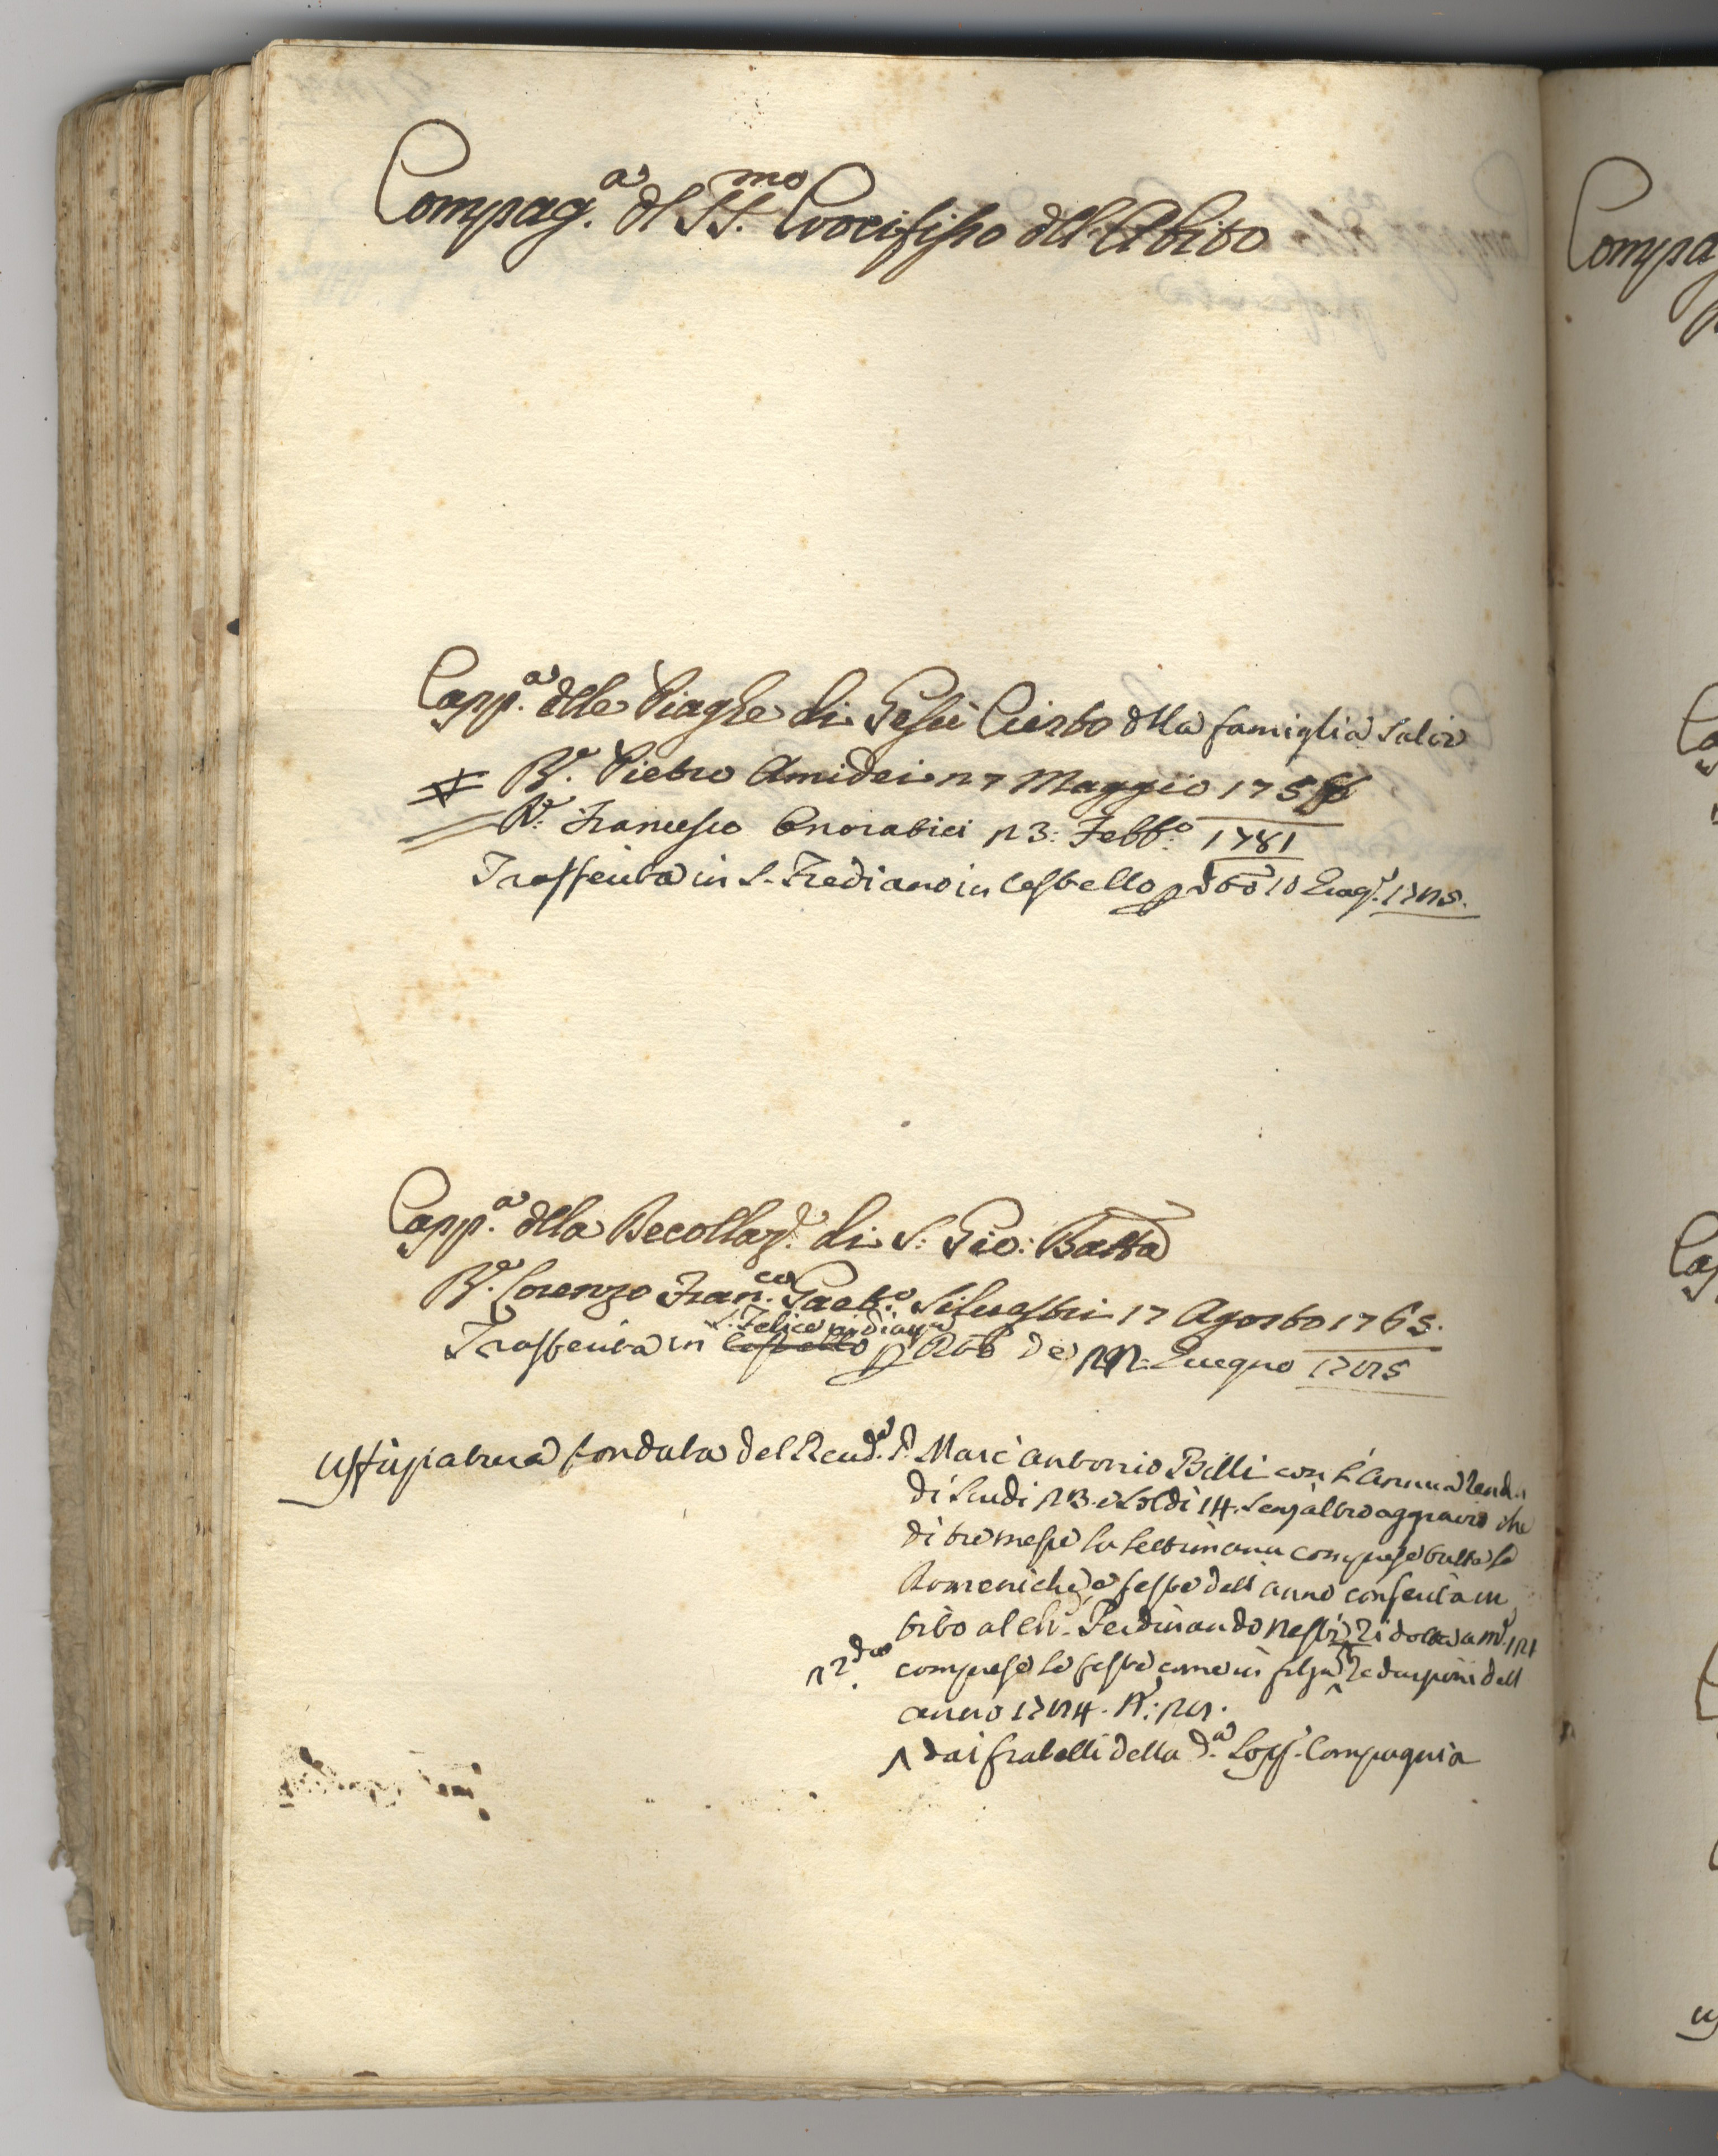 Compag.a dl SS.mo Crocifisso dll'Abito
Capp.a dlle Piaghe di Gesù Cristo dlla famiglia Salis
R.e Pietro Amidei 27 Maggio 1756
R.e Francesco Onorabici 23: Febb.o 1781
Trasferita in S. Frediano in Cestello p 1785.
Capp.a dlla Decollaz.e di S: Gio: Batta
R.e Lorenzo Fran.co Gaet.o Silvestri 17 Agosto 1765.
S. Felice in Piazza
Trasferita in Cestello p de 22 Giugno 1785
Uffiziatura fondata del Rend.o P. Marc'Antonio Billi con l'annua rend.a
di Scudi 23. e Soldi 14. senz'altro aggravio che
di tre messe la settimana comprese tutte le
Domeniche, e feste dell'anno conferita in
tito al Ch.o Ferdinando
comprese le feste come in filza dell
anno 1784. N.: 28.
dai fratelli della d.a Sopp. Compagnia